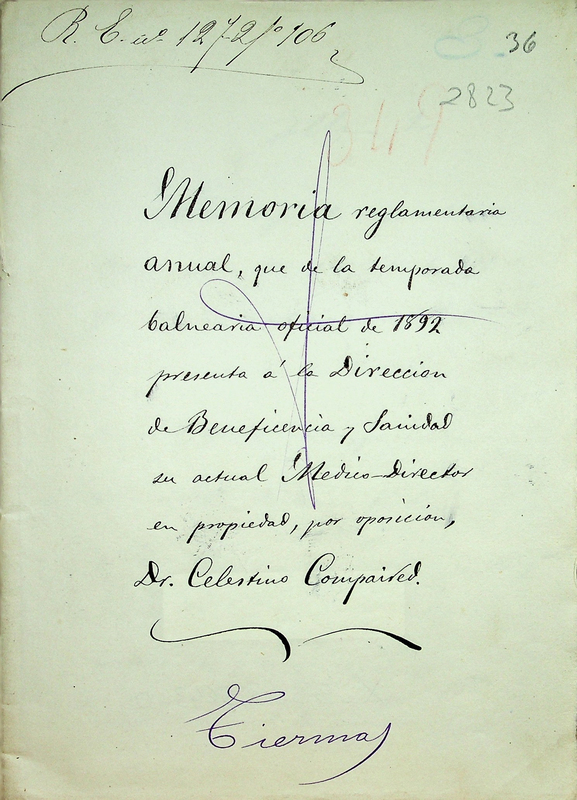 R. E. nº 1272 fº 106
36
2823
347
Memoria reglamentaria
anual, que de la temporada
balnearia oficial de 1892
presenta á la Direccion
de Beneficencia y Sanidad
su actual Medico-Director
en propiedad, por oposicion,
Dr. Celestino Compaired.
Tiermas